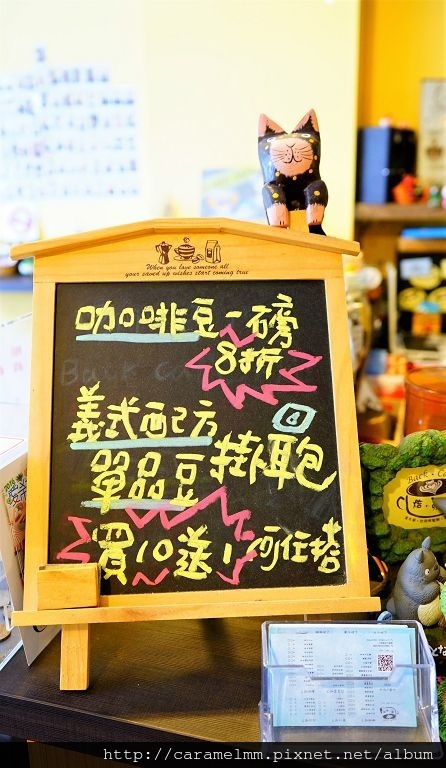 When you love someone all
your saved up wishes start coming true
咖啡豆一磅
8折
義式配方
單品豆
掛耳包
買10送1 可任搭
http://caramelmm.pixnet.net/album